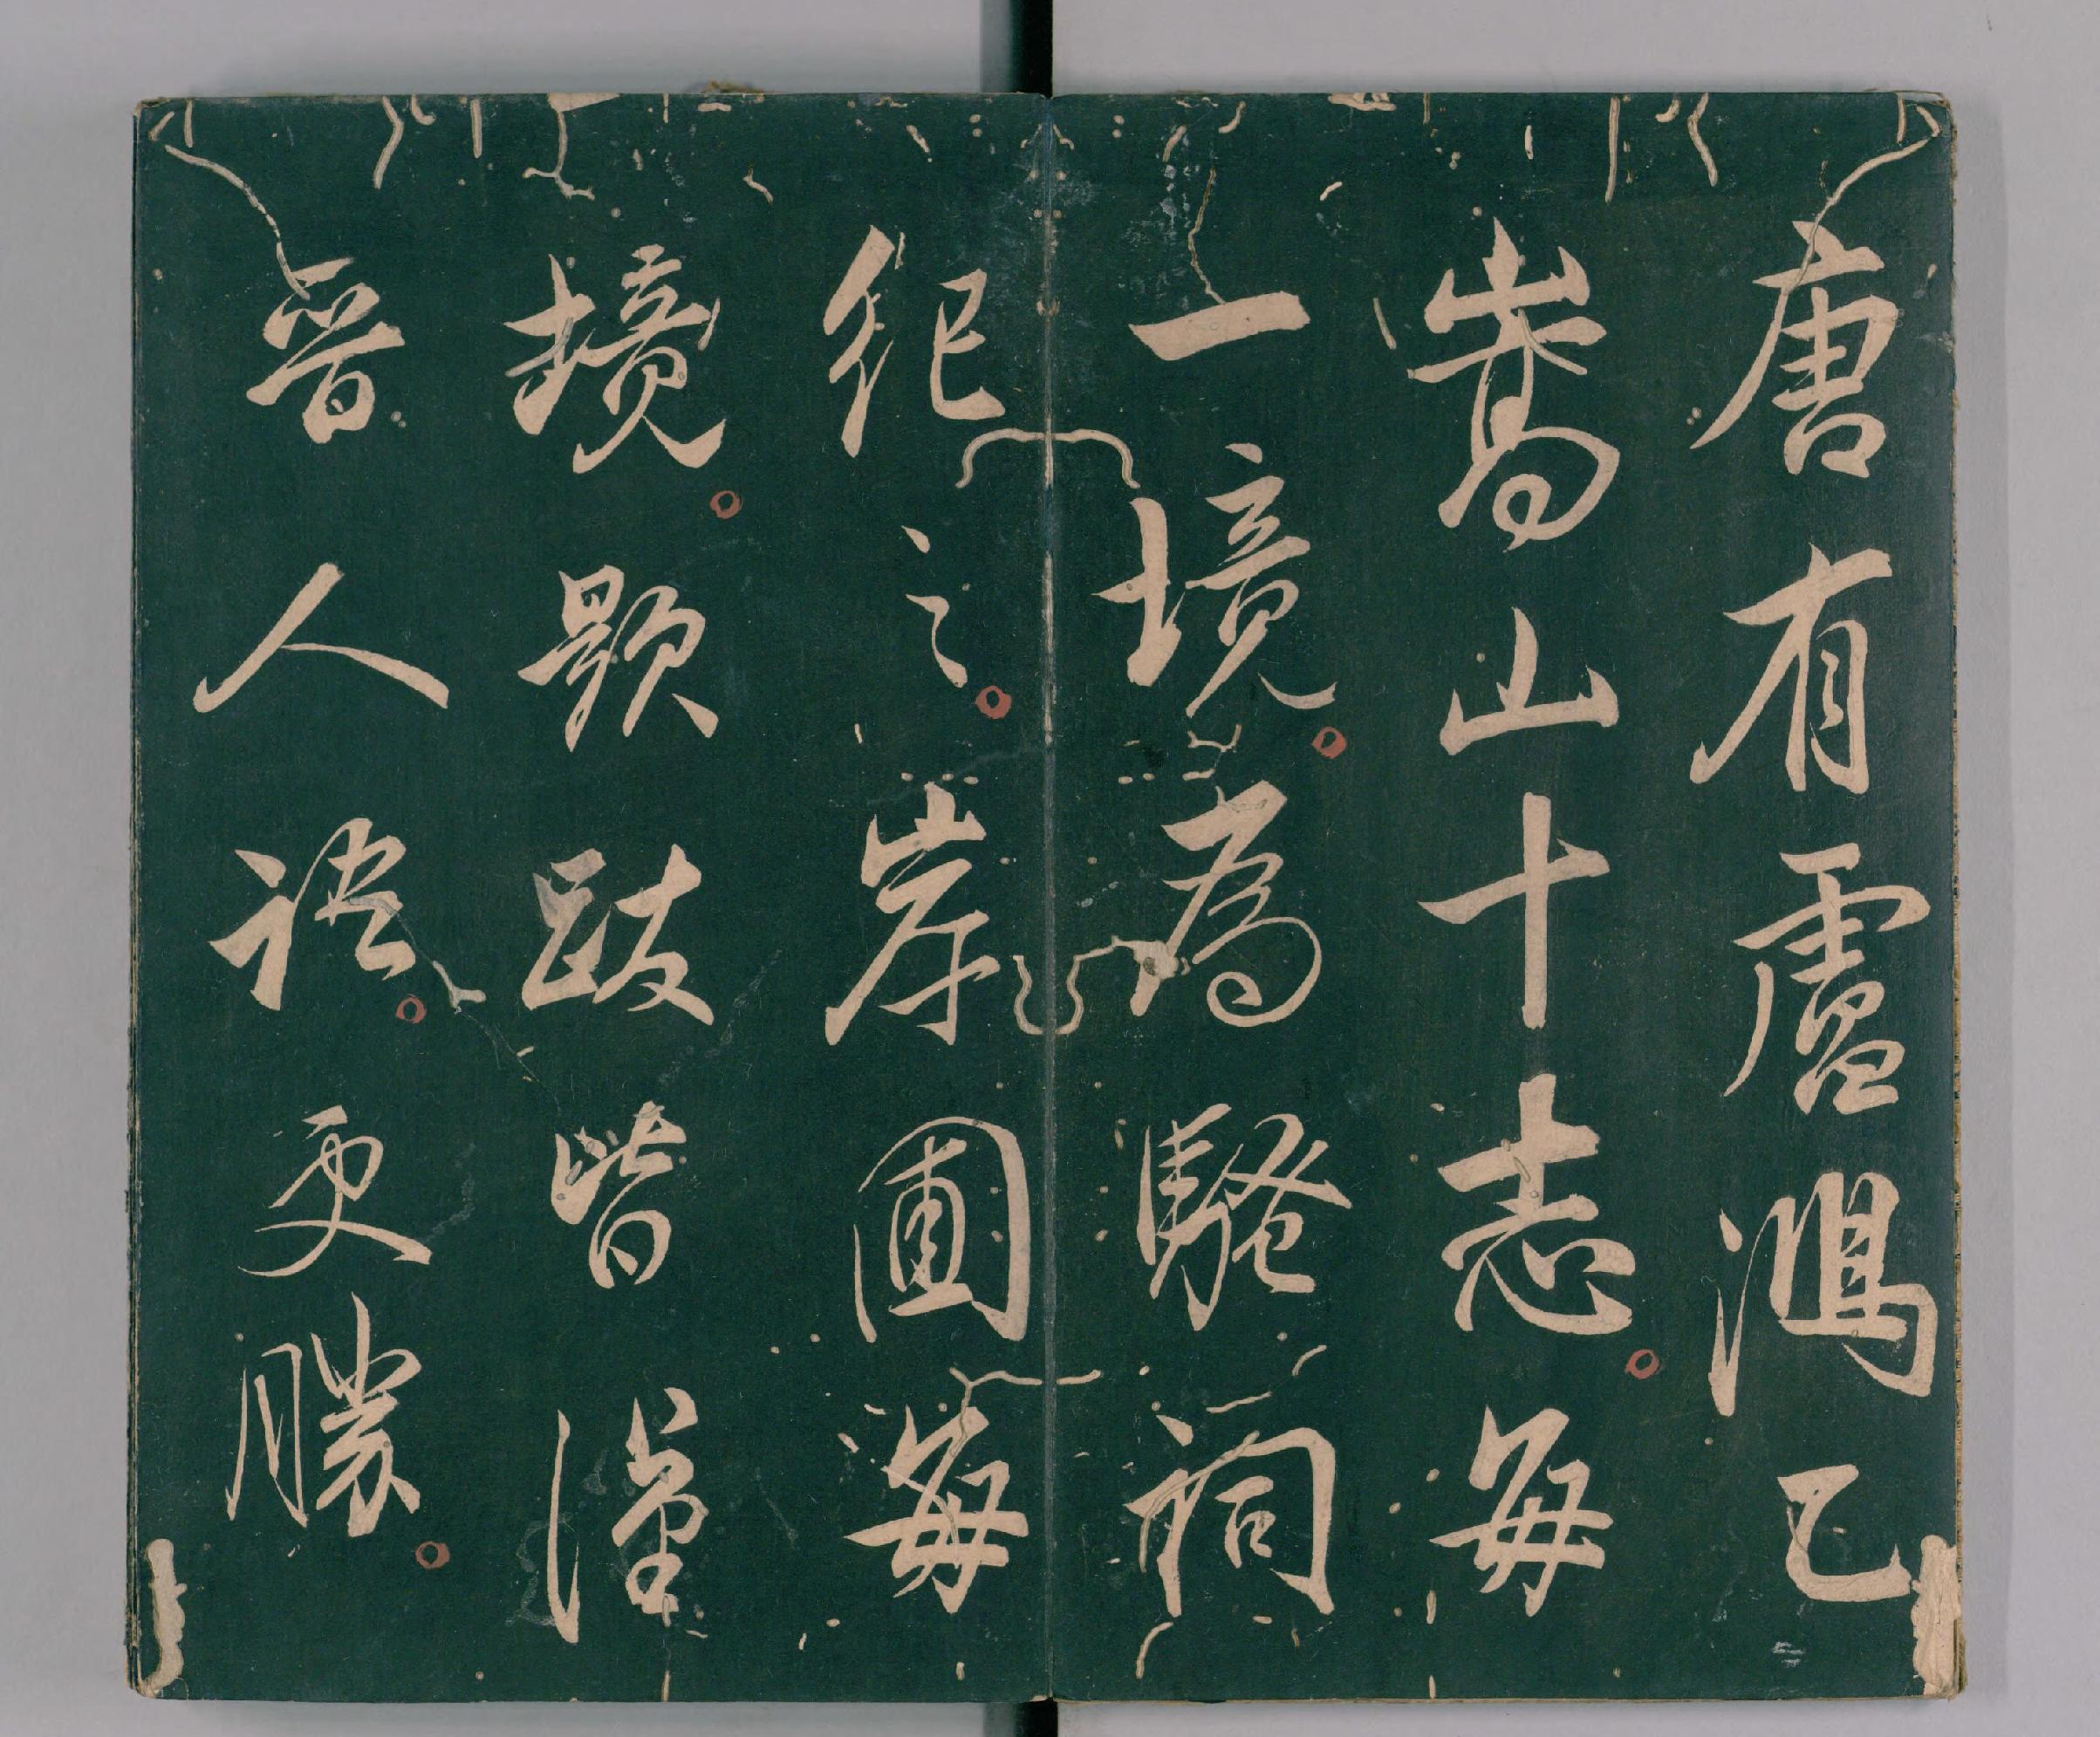 唐有盧鴻乙
嵩山十志每
一境為騷詞
紀之岸圃每
境題跋皆僅
晉人語更勝